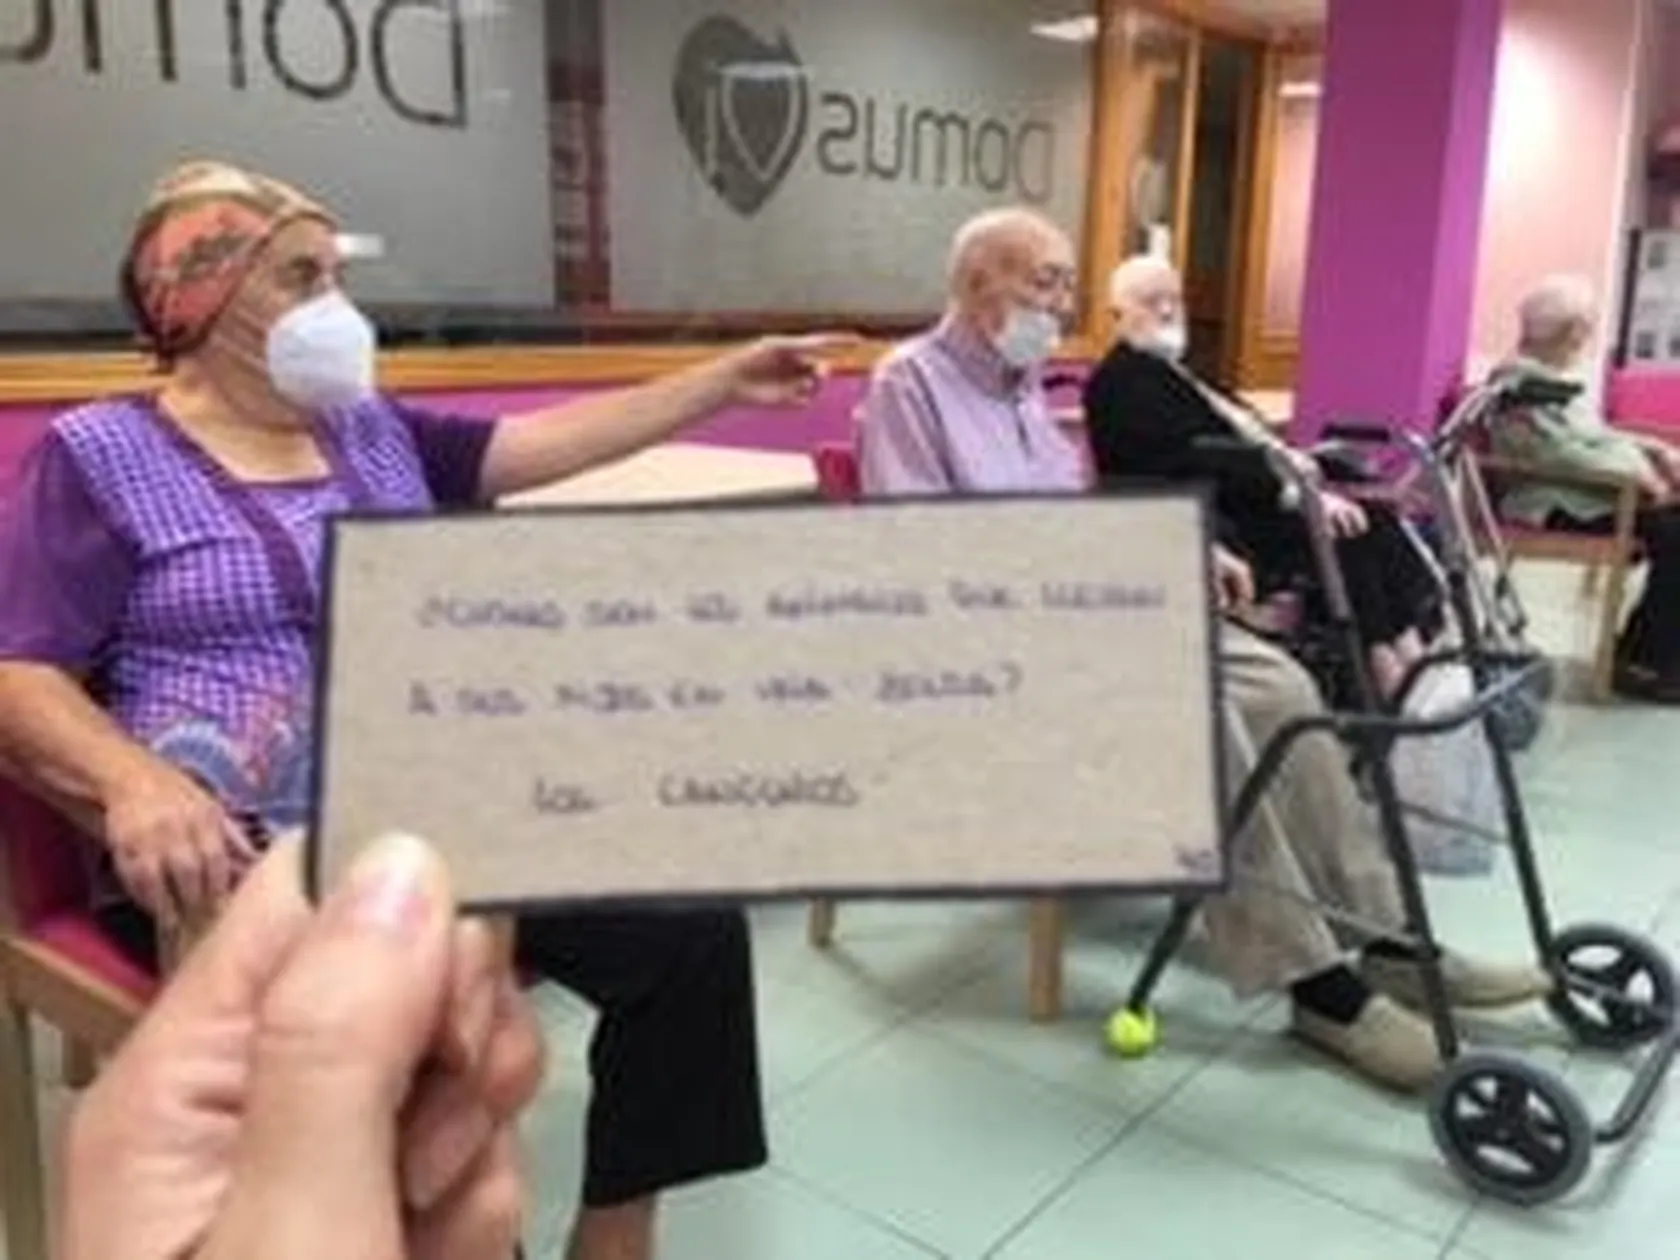 Domus
Domus
¿CUÁLES SON LOS ANIMALES QUE LLEVAN
A SUS HIJOS EN UNA BOLSA?
LOS CANGUROS